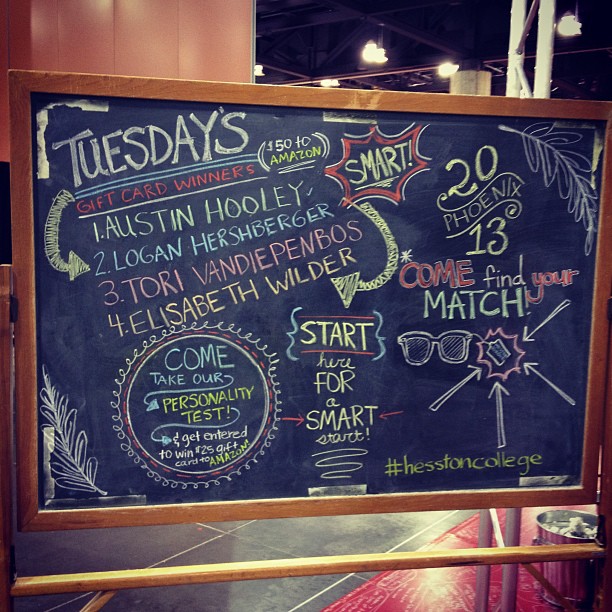 TUESDAY'S
GIFT CARD WINNERS
($50 to
AMAZON)
1. AUSTIN HOOLEY
2. LOGAN HERSHBERGER
3. TORI VANDIEPENBOS
4. ELISABETH WILDER
SMART!
20
PHOENIX
13
COME find your
MATCH!
COME
TAKE OUR
PERSONALITY
TEST!
& get entered
to win $25 gift
card to AMAZON!
{START}
here
FOR
a
SMART
start!
#hesstoncollege